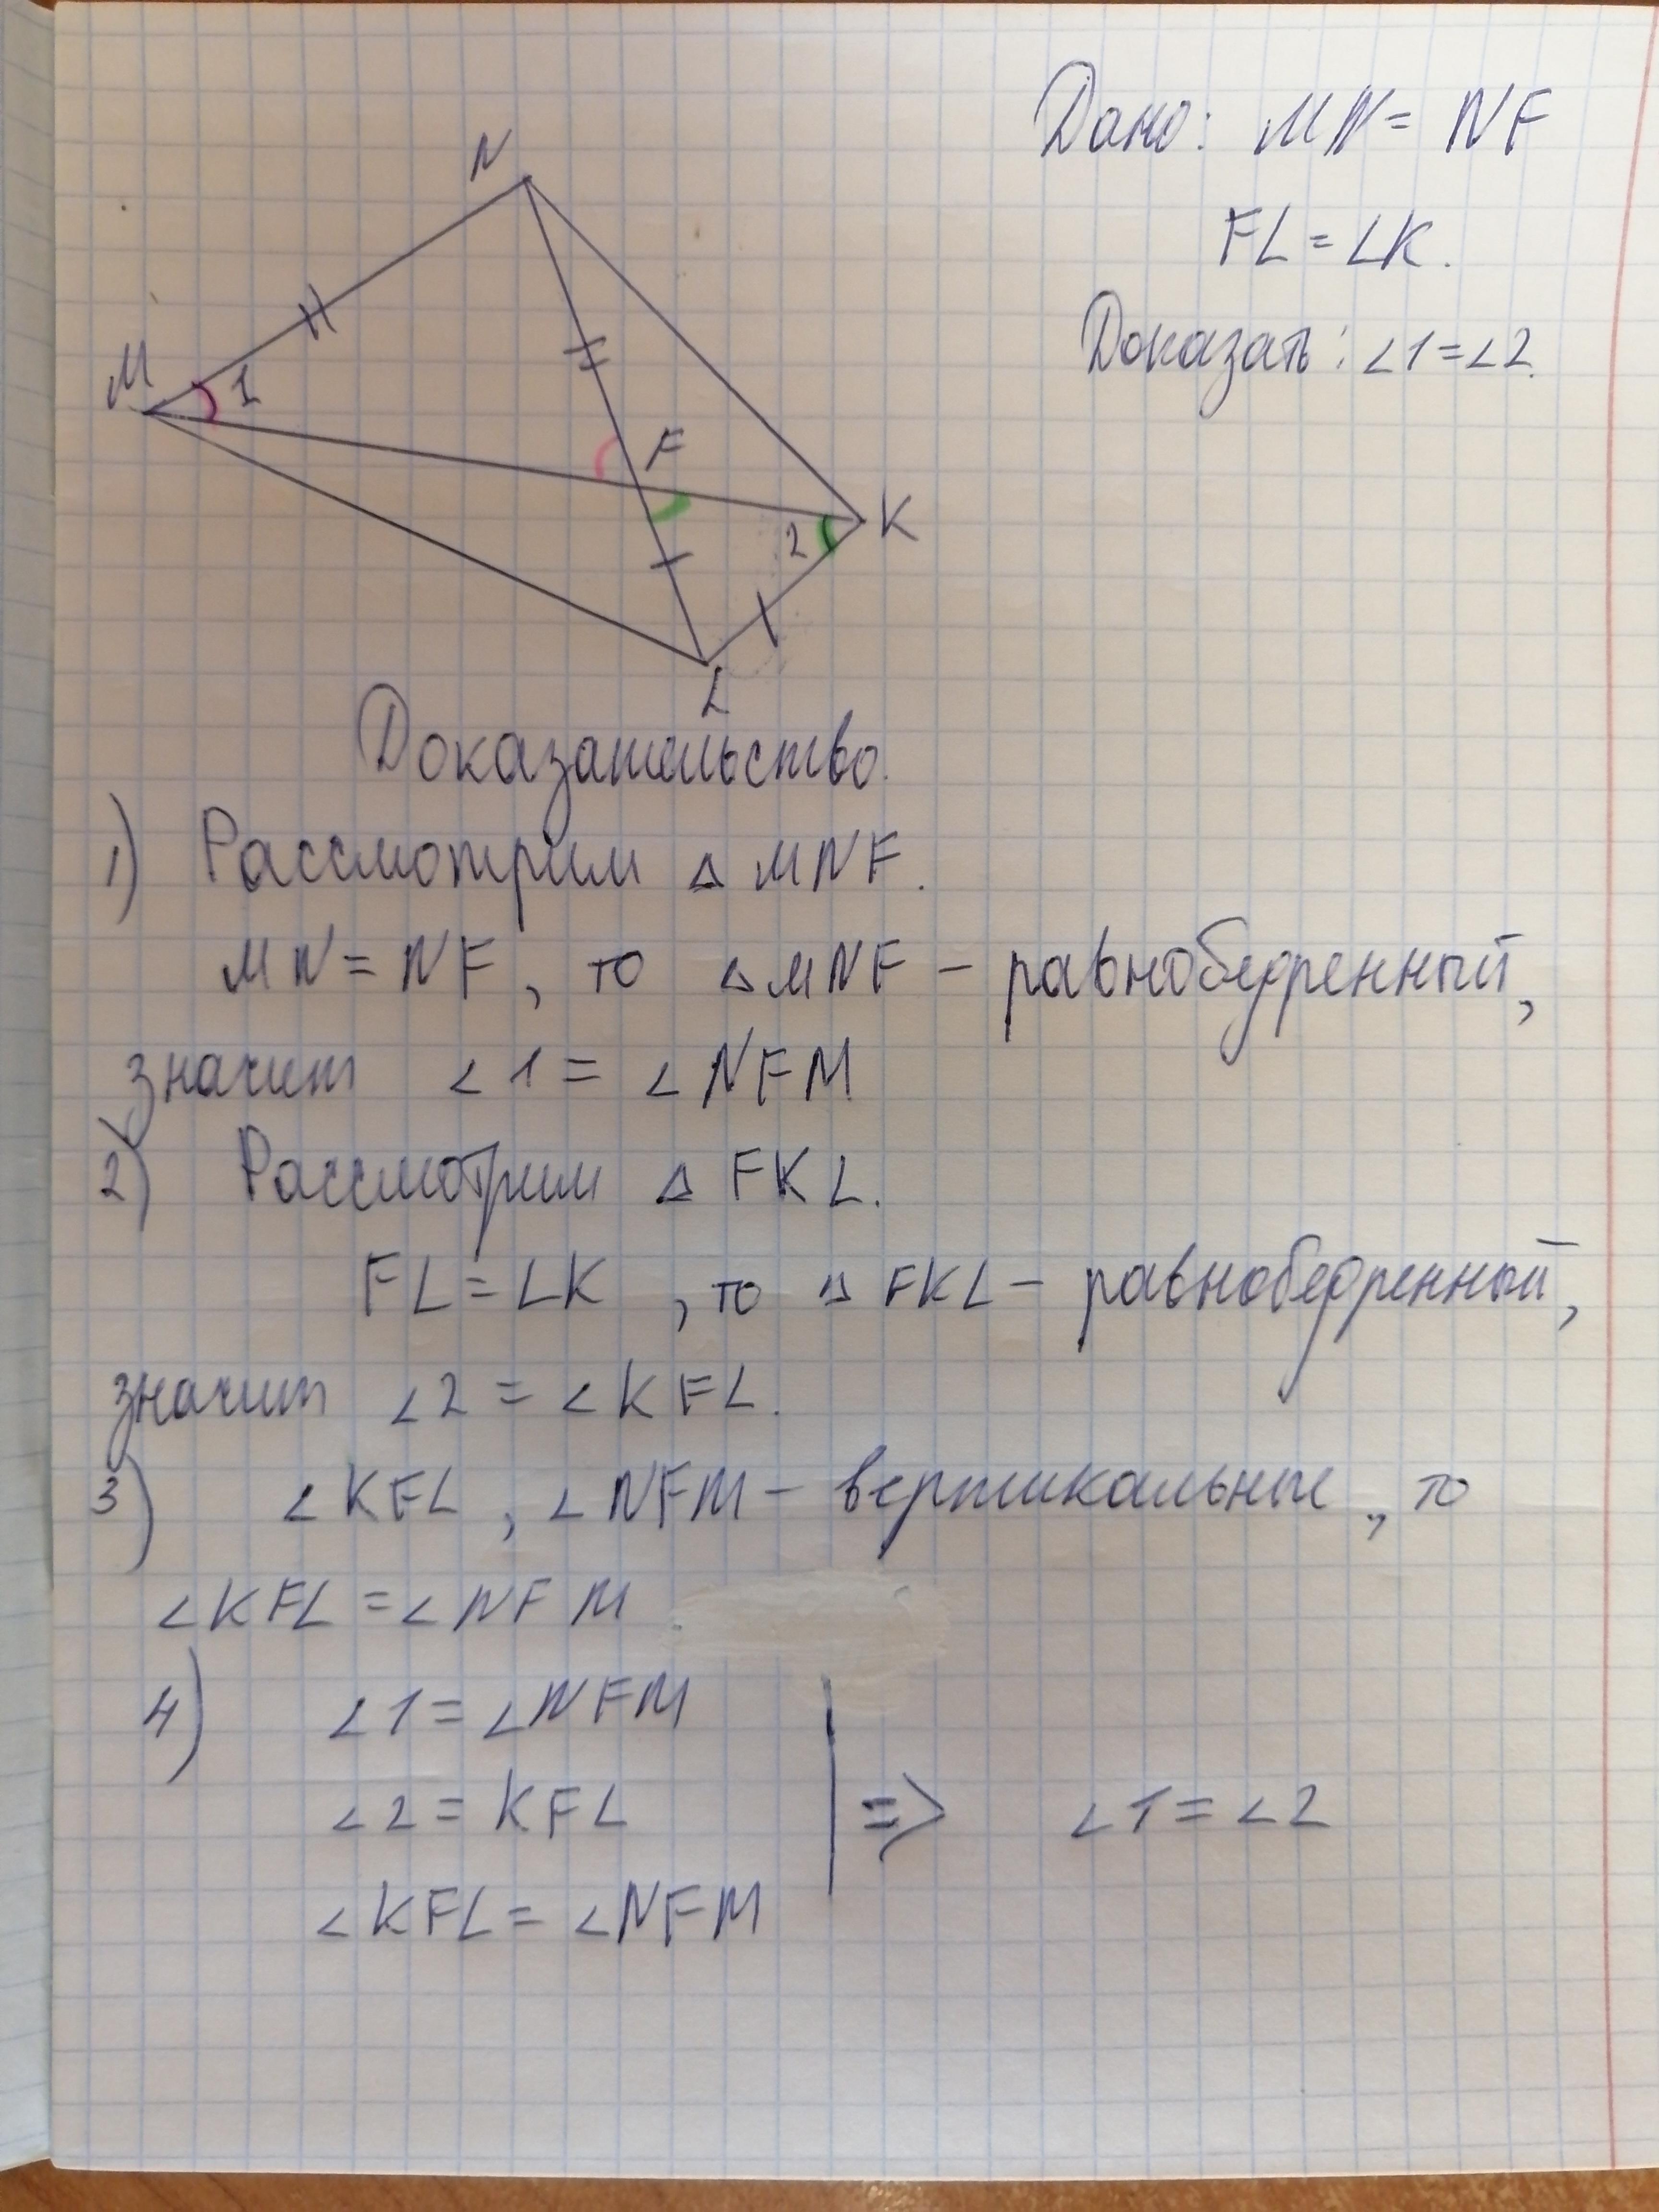 Дано: MN = NF
FL = LK.
Доказать: ∠1=∠2.
N
M
1
F
K
2
L
Доказательство.
1) Рассмотрим △ MNF.
MN = NF, то △MNF – равнобедренный,
значит ∠1 = ∠NFM
2) Рассмотрим △ FKL.
FL = LK, то △ FKL – равнобедренный,
значит ∠2 = ∠KFL.
3) ∠KFL, ∠NFM – вертикальные, то
∠KFL = ∠NFM
4) ∠1 = ∠NFM
∠2 = KFL => ∠1 = ∠2
∠KFL = ∠NFM